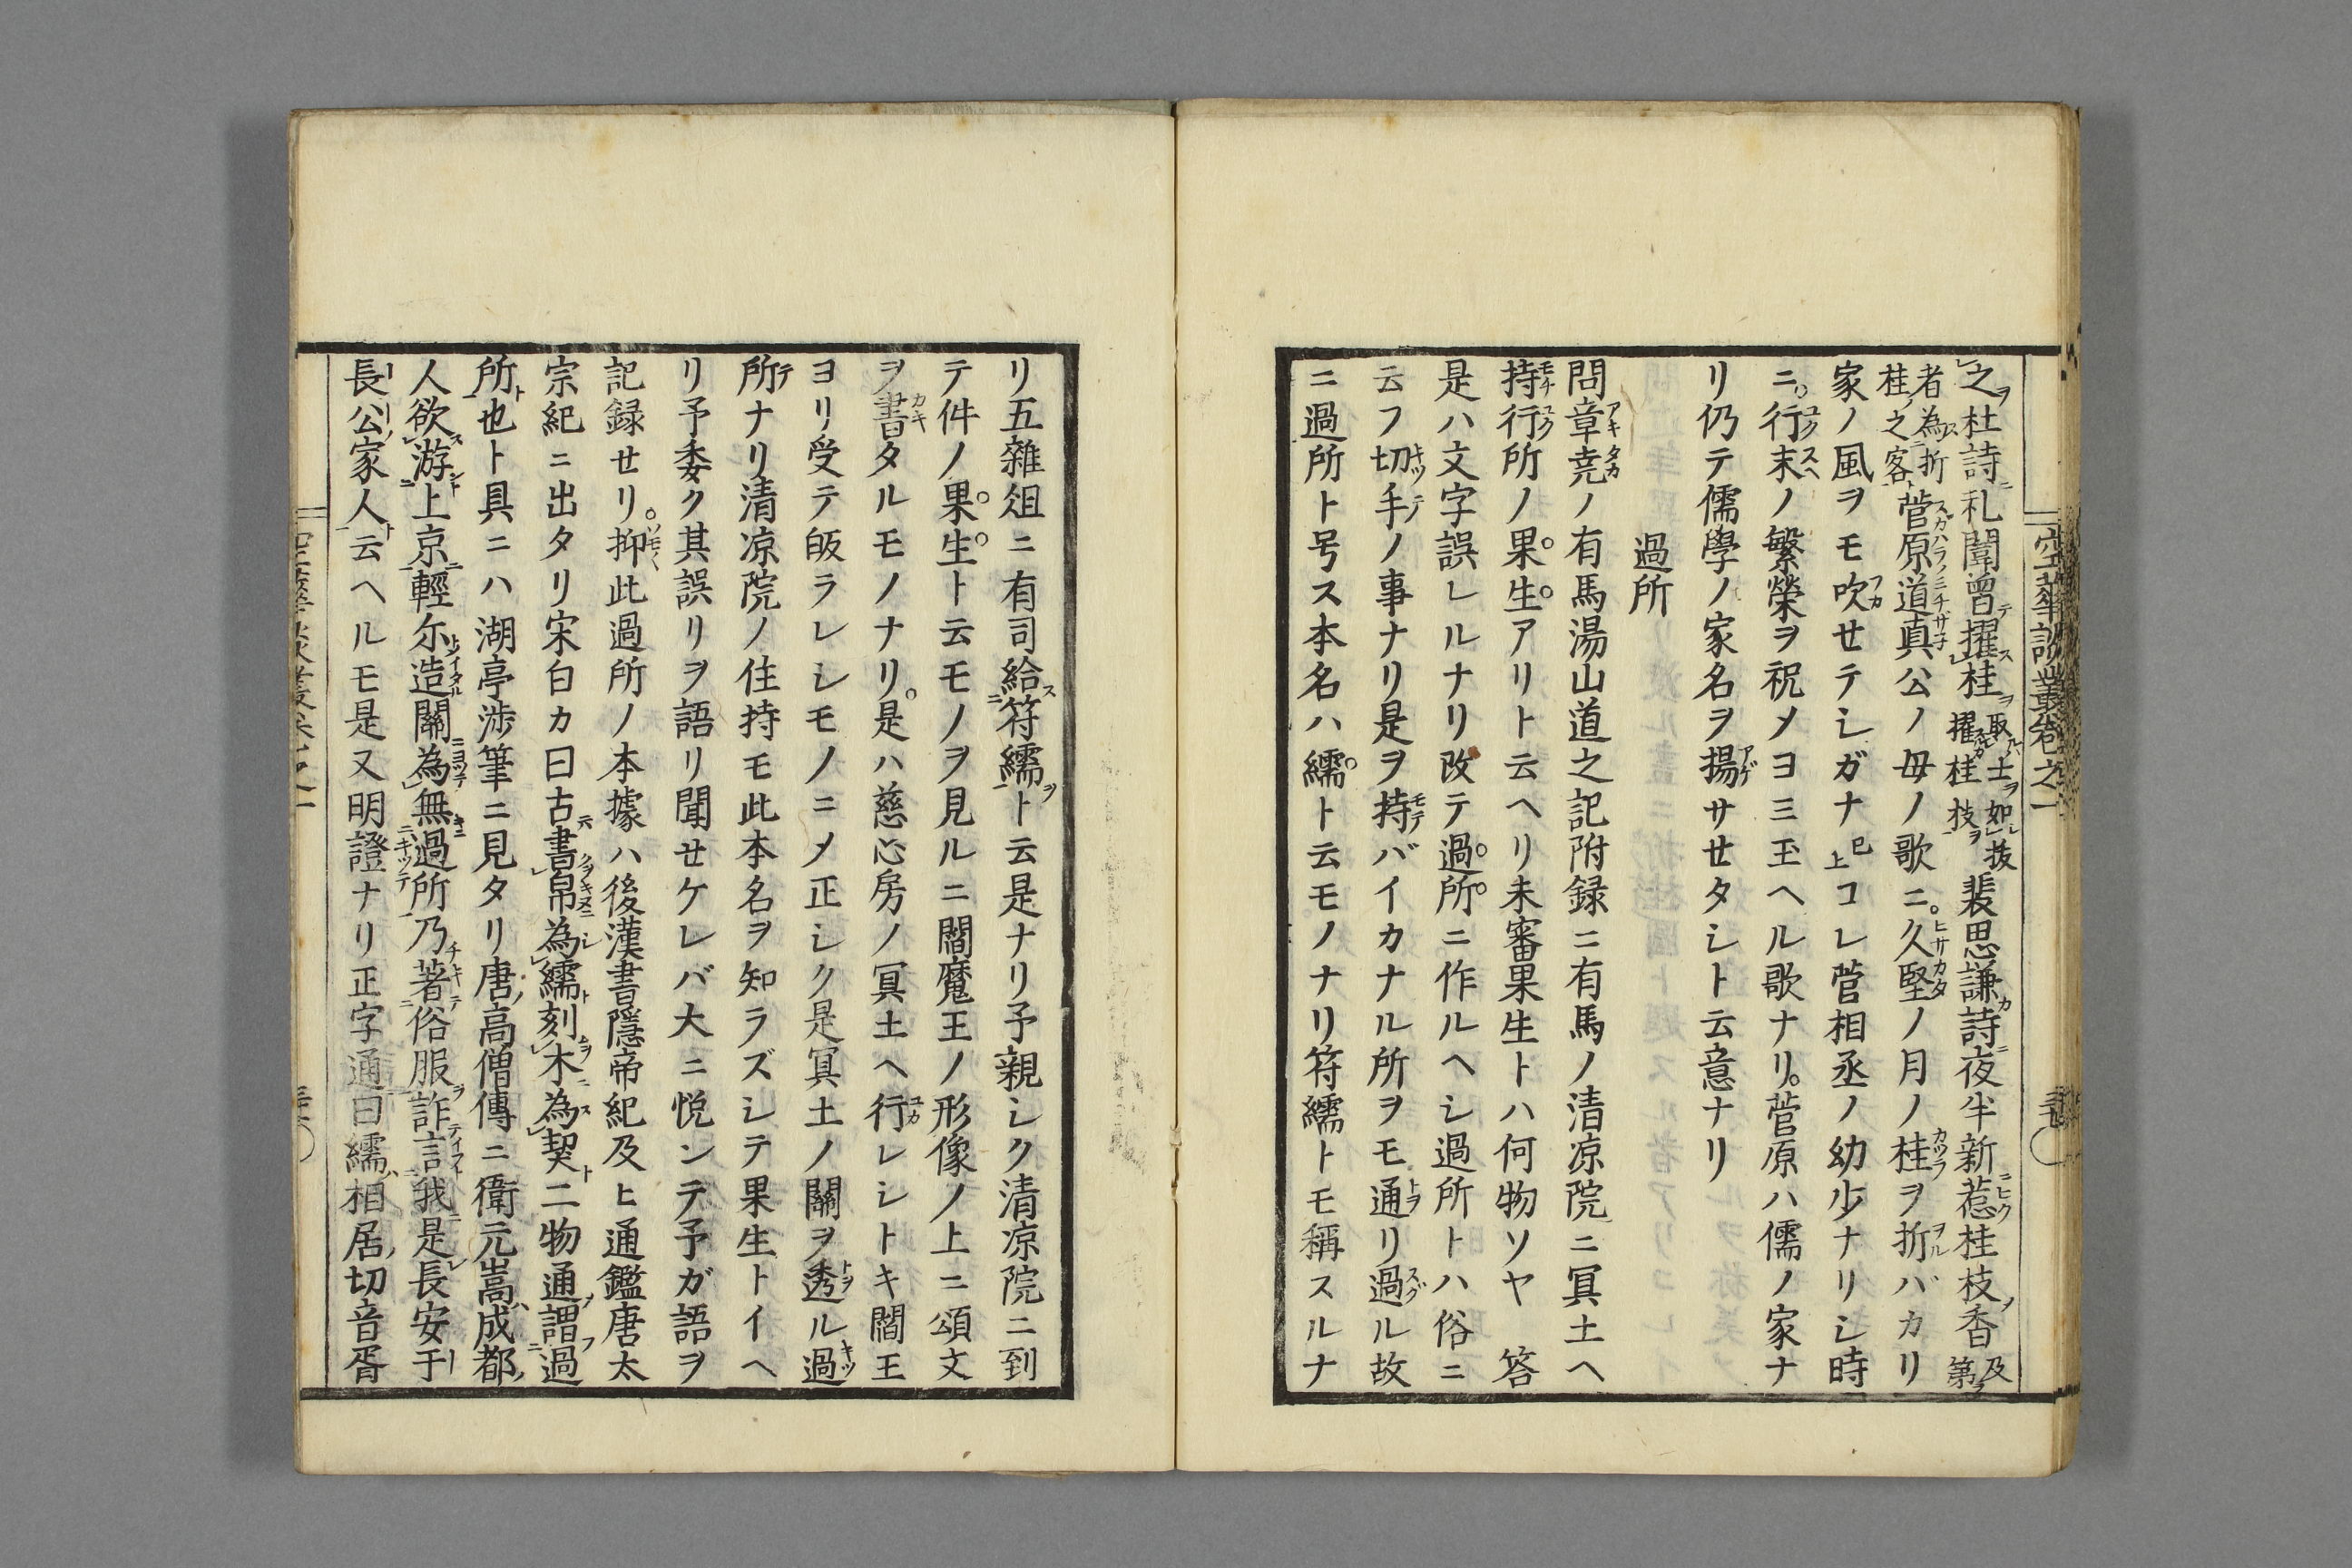 空華談叢卷之一
之杜詩札闈曽擢桂取士如抜擢桂技裴思謙詩夜半新惹桂枝香及第
者為折桂之客菅原道真公ノ母ノ歌ニ久堅ノ月ノ桂ヲ折バカリ
家ノ風ヲモ吹セテシガナ已上コレ菅相丞ノ幼少ナリシ時
ニ行末ノ繁榮ヲ祝メヨミ玉ヘル歌ナリ菅原ハ儒ノ家ナ
リ仍テ儒學ノ家名ヲ揚サセタシト云意ナリ
過所
問章尭ノ有馬湯山道之記附録ニ有馬ノ清凉院ニ冥土ヘ
持行所ノ果生アリト云ヘリ未審果生トハ何物ソヤ 答
是ハ文字誤レルナリ改テ過所ニ作ルヘシ過所トハ俗ニ
云フ切手ノ事ナリ是ヲ持バイカナル所ヲモ通リ過ル故
ニ過所ト号ス本名ハ繻ト云モノナリ符繻トモ稱スルナ
リ五雜俎ニ有司給符繻ト云是ナリ予親シク清凉院ニ到
テ件ノ果生ト云モノヲ見ルニ閻魔王ノ形像ノ上ニ頌文
ヲ書タルモノナリ是ハ慈心房ノ冥土ヘ行レシトキ閻王
ヨリ受テ皈ラレシモノニメ正シク是冥土ノ關ヲ透ル過
所ナリ清凉院ノ住持モ此本名ヲ知ラズシテ果生トイヘ
リ予委ク其誤リヲ語リ聞セケレバ大ニ悦ンデ予ガ語ヲ
記録セリ抑此過所ノ本據ハ後漢書隱帝紀及ヒ通鑑唐太
宗紀ニ出タリ宋白カ曰古書帛為繻刻木為契二物通謂過
所也ト具ニハ湖亭渉筆ニ見タリ唐高僧傳ニ衛元嵩成都
人欲游上京輕尓造關為無過所乃著俗服詐言我是長安于
長公家人云ヘルモ是又明證ナリ正字通曰繻相居切音胥